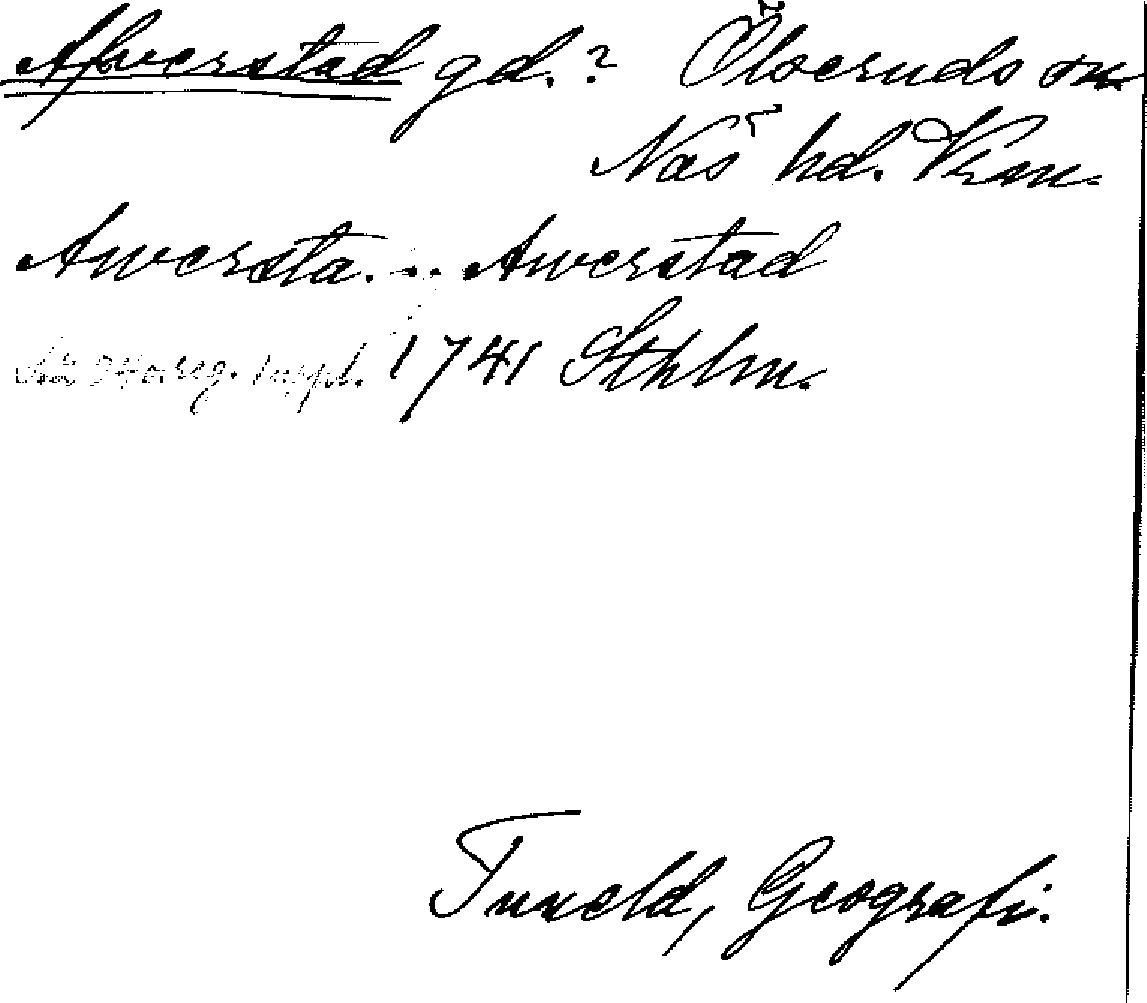 Afwerstad gd.? Ölseruds sn
Näs hd. Vrm.
Awersta. .. Awerstad
1741 Sthlm.
Tuneld, Geografi.